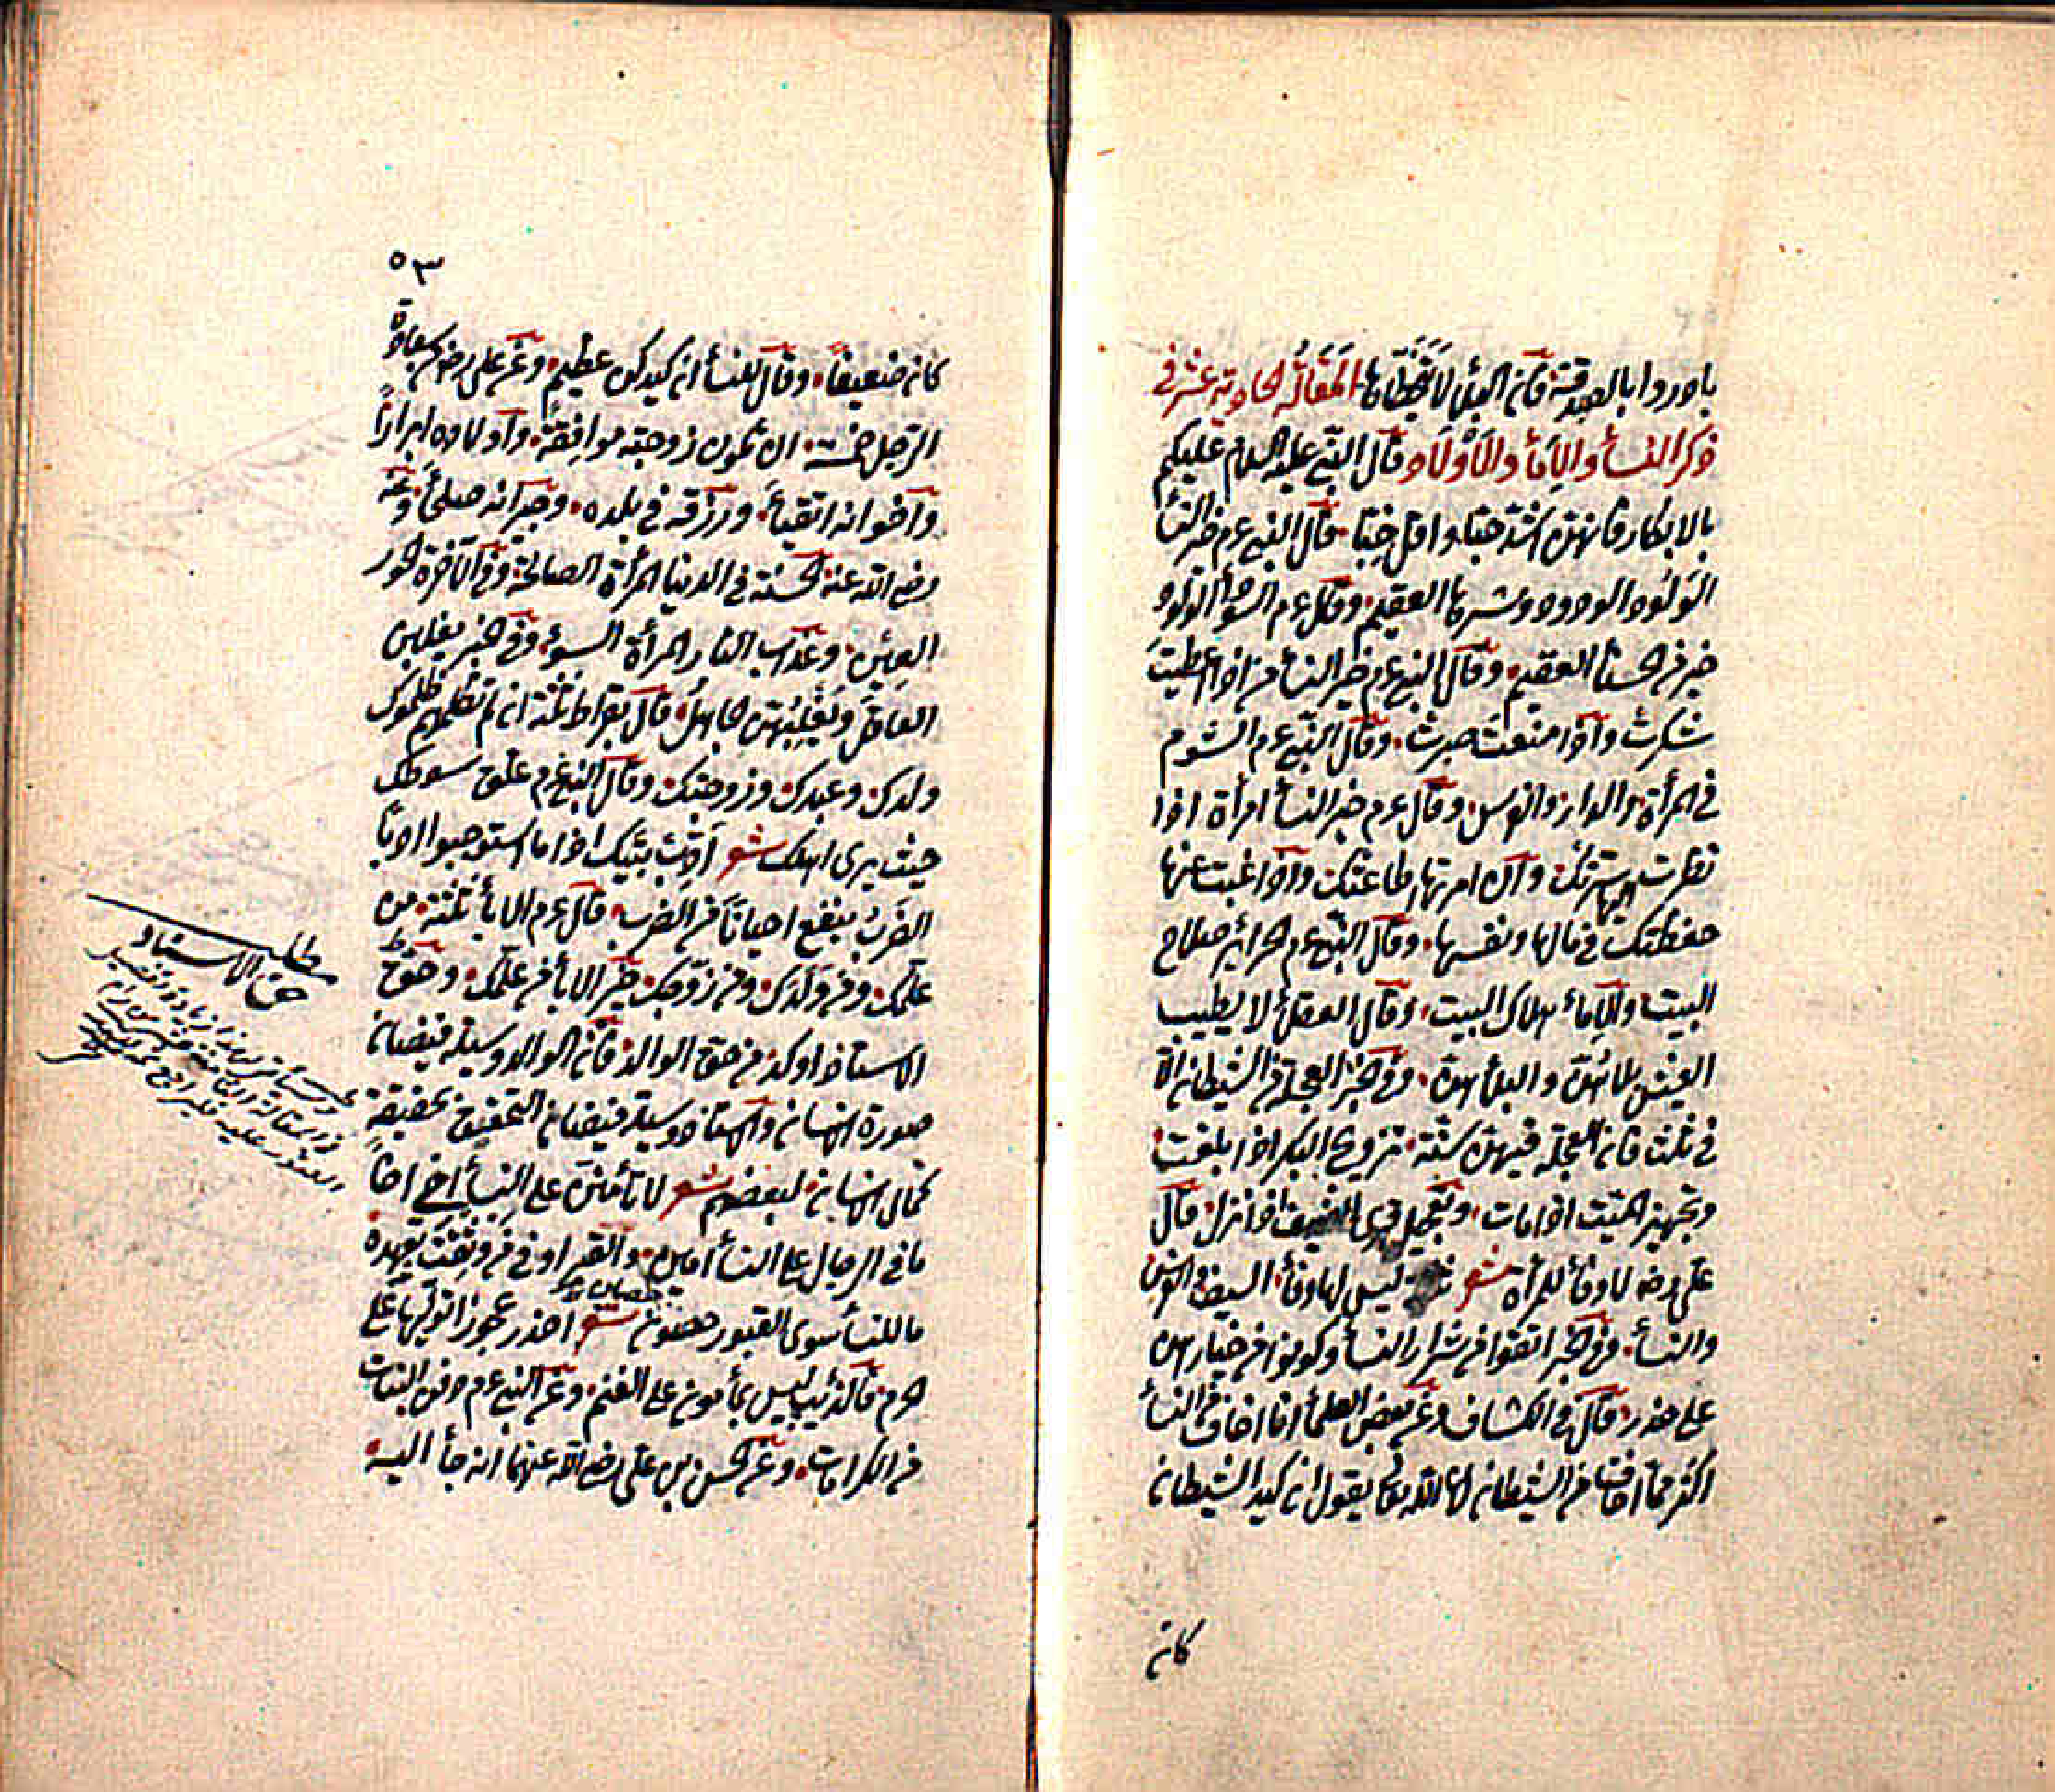 بادروا بالصدقة فان البلأ لا يتخطاها المقالة الحادية عشر في
ذكر النسأ والامأ والاولاد قال النبي عليه السلام عليكم
بالابكار فانهن اشد حبا واقل خبا قال النبي عم خير النسأ
الولود الودود وشرها العقيم وقال عم السوأ الولود
خير من الحسنأ العقيم وقال النبي عم خير النسأ من اذا اعطيت
شكرت واذا منعت صبرت وقال النبي عم الشوم
في المرأة والدار والفرس وقال عم خير النسأ امرأة اذا
نظرت اليها سرتك وان امرتها اطاعتك واذا غبت عنها
حفظتك في مالها ونفسها وقال النبي عم الحرائر صلاح
البيت والامأ هلاك البيت وقال العقلأ لا يطيب
العيش بلا هن والبلأ هن وفي الخبر العجلة من الشيطان الا
في ثلث فان العجلة فيهن سنة تزويج البكر اذا بلغت
وتجهيز الميت اذا مات وتعجيل قرى الضيف اذا نزل قال
علي رضه لا وفأ للمرأة شعر ليس لها وفأ السيف الفرس
والنسأ وفي الخبر اتقوا من شرار النسأ وكونوا من خيارهن
على حذر قال في الكشاف وعن بعض العلمأ انا اخاف من النسأ
اكثر مما اخاف من الشيطان لان الله تعالى يقول ان كيد الشيطان
كان
٥٣
كان ضعيفا وقال للنسأ ان كيدكن عظيم وعن علي رضه سعادة
الرجل خمسة ان تكون زوجته موافقة واولاده ابرارا
واخوانه اتقيأ ورزقه في بلده وجيرانه صلحأ وعنه
رضي الله عنه الحسنة في الدنيا المرأة الصالحة وفي الآخرة الحور
العين وعذاب النار المرأة السوء وفي الخبر يغلبن
العاقل ويغلبهن الجاهل قال بقراط ثلثة ان لم تظلمهم ظلموك
ولدك وعبدك وزوجتك وقال النبي عم علق سوطك
حيث يرى اهلك شعر ادب بنيك اذا ما استوجبوا ادبا
الضرب ينفع احيانا من الضرب قال عم الابأ ثلثة من
علمك ومن ولدك ومن زوجك خير الابأ من علمك وحق
الاستاذ اوكد من حق الوالد فان الوالد وسيلة فيضان
صورة الانسان والاستاذ وسيلة فيضان التحقيق بحقيقة
كمال الانسان لبعضهم شعر لا تأمنن على النسأ اخي اخا
ما في الرجال على النسأ امين والقبر اوفى من وثقت بعهده
ما للنسأ سوى القبور حصون شعر احذر عجوزا توليها على
الحرم فالذئب ليس بمأمون على الغنم وعن النبي عم دفن البنات
من المكرمات وعن الحسن بن علي رضي الله عنهما انه جأ اليه
مطلب
حق الاستاد